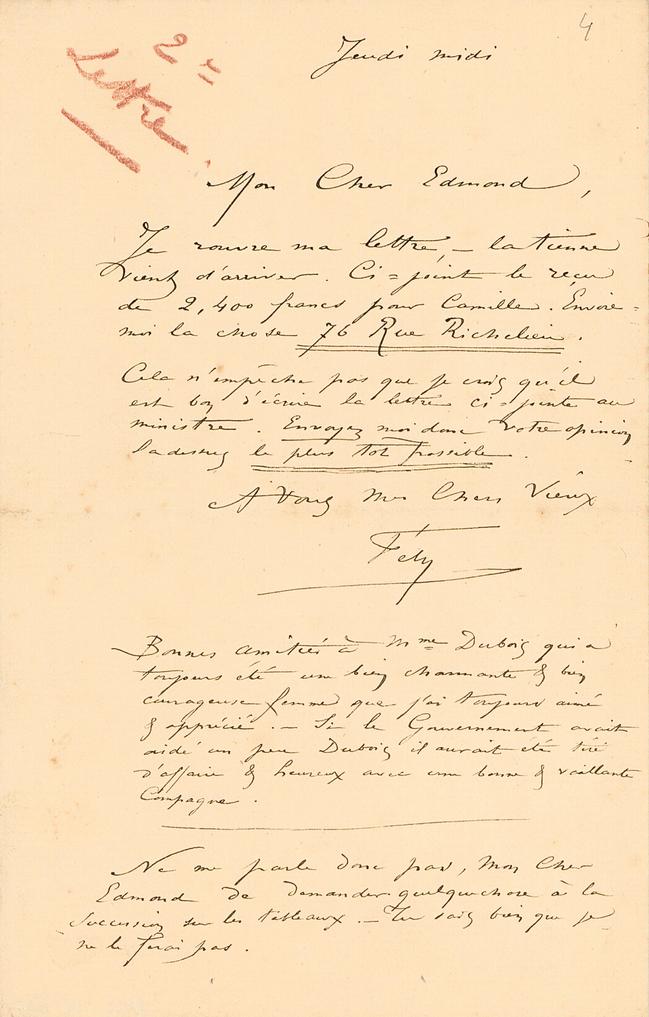 4
2e
Lettre
Jeudi midi
Mon Cher Edmond,
Je rouvre ma lettre, – la tienne
vient d'arriver. Ci=joint le reçu
de 2,400 francs pour Camille. Envoie=
moi la chose 76 Rue Richelieu.
Cela n'empêche pas que je crois qu'il
est bon d'écrire la lettre ci-jointe au
ministre. Envoyez moi donc votre opinion
ladessus le plus tot possible.
A Vous Mes Chers Vieux
Fély
Bonnes amitiés à Mme Dubois qui a
toujours été une bien charmante & bien
courageuse femme que j'ai toujours aimé
& apprécié. – Si le Gouvernement avait
aidé un peu Dubois il aurait été tiré
d'affaire & heureux avec une bonne & vaillante
Compagne.
Ne me parle donc pas, Mon Cher
Edmond de demander quelquechose à la
Succession sur les tableaux. – Tu sais bien que je
ne le ferai pas.